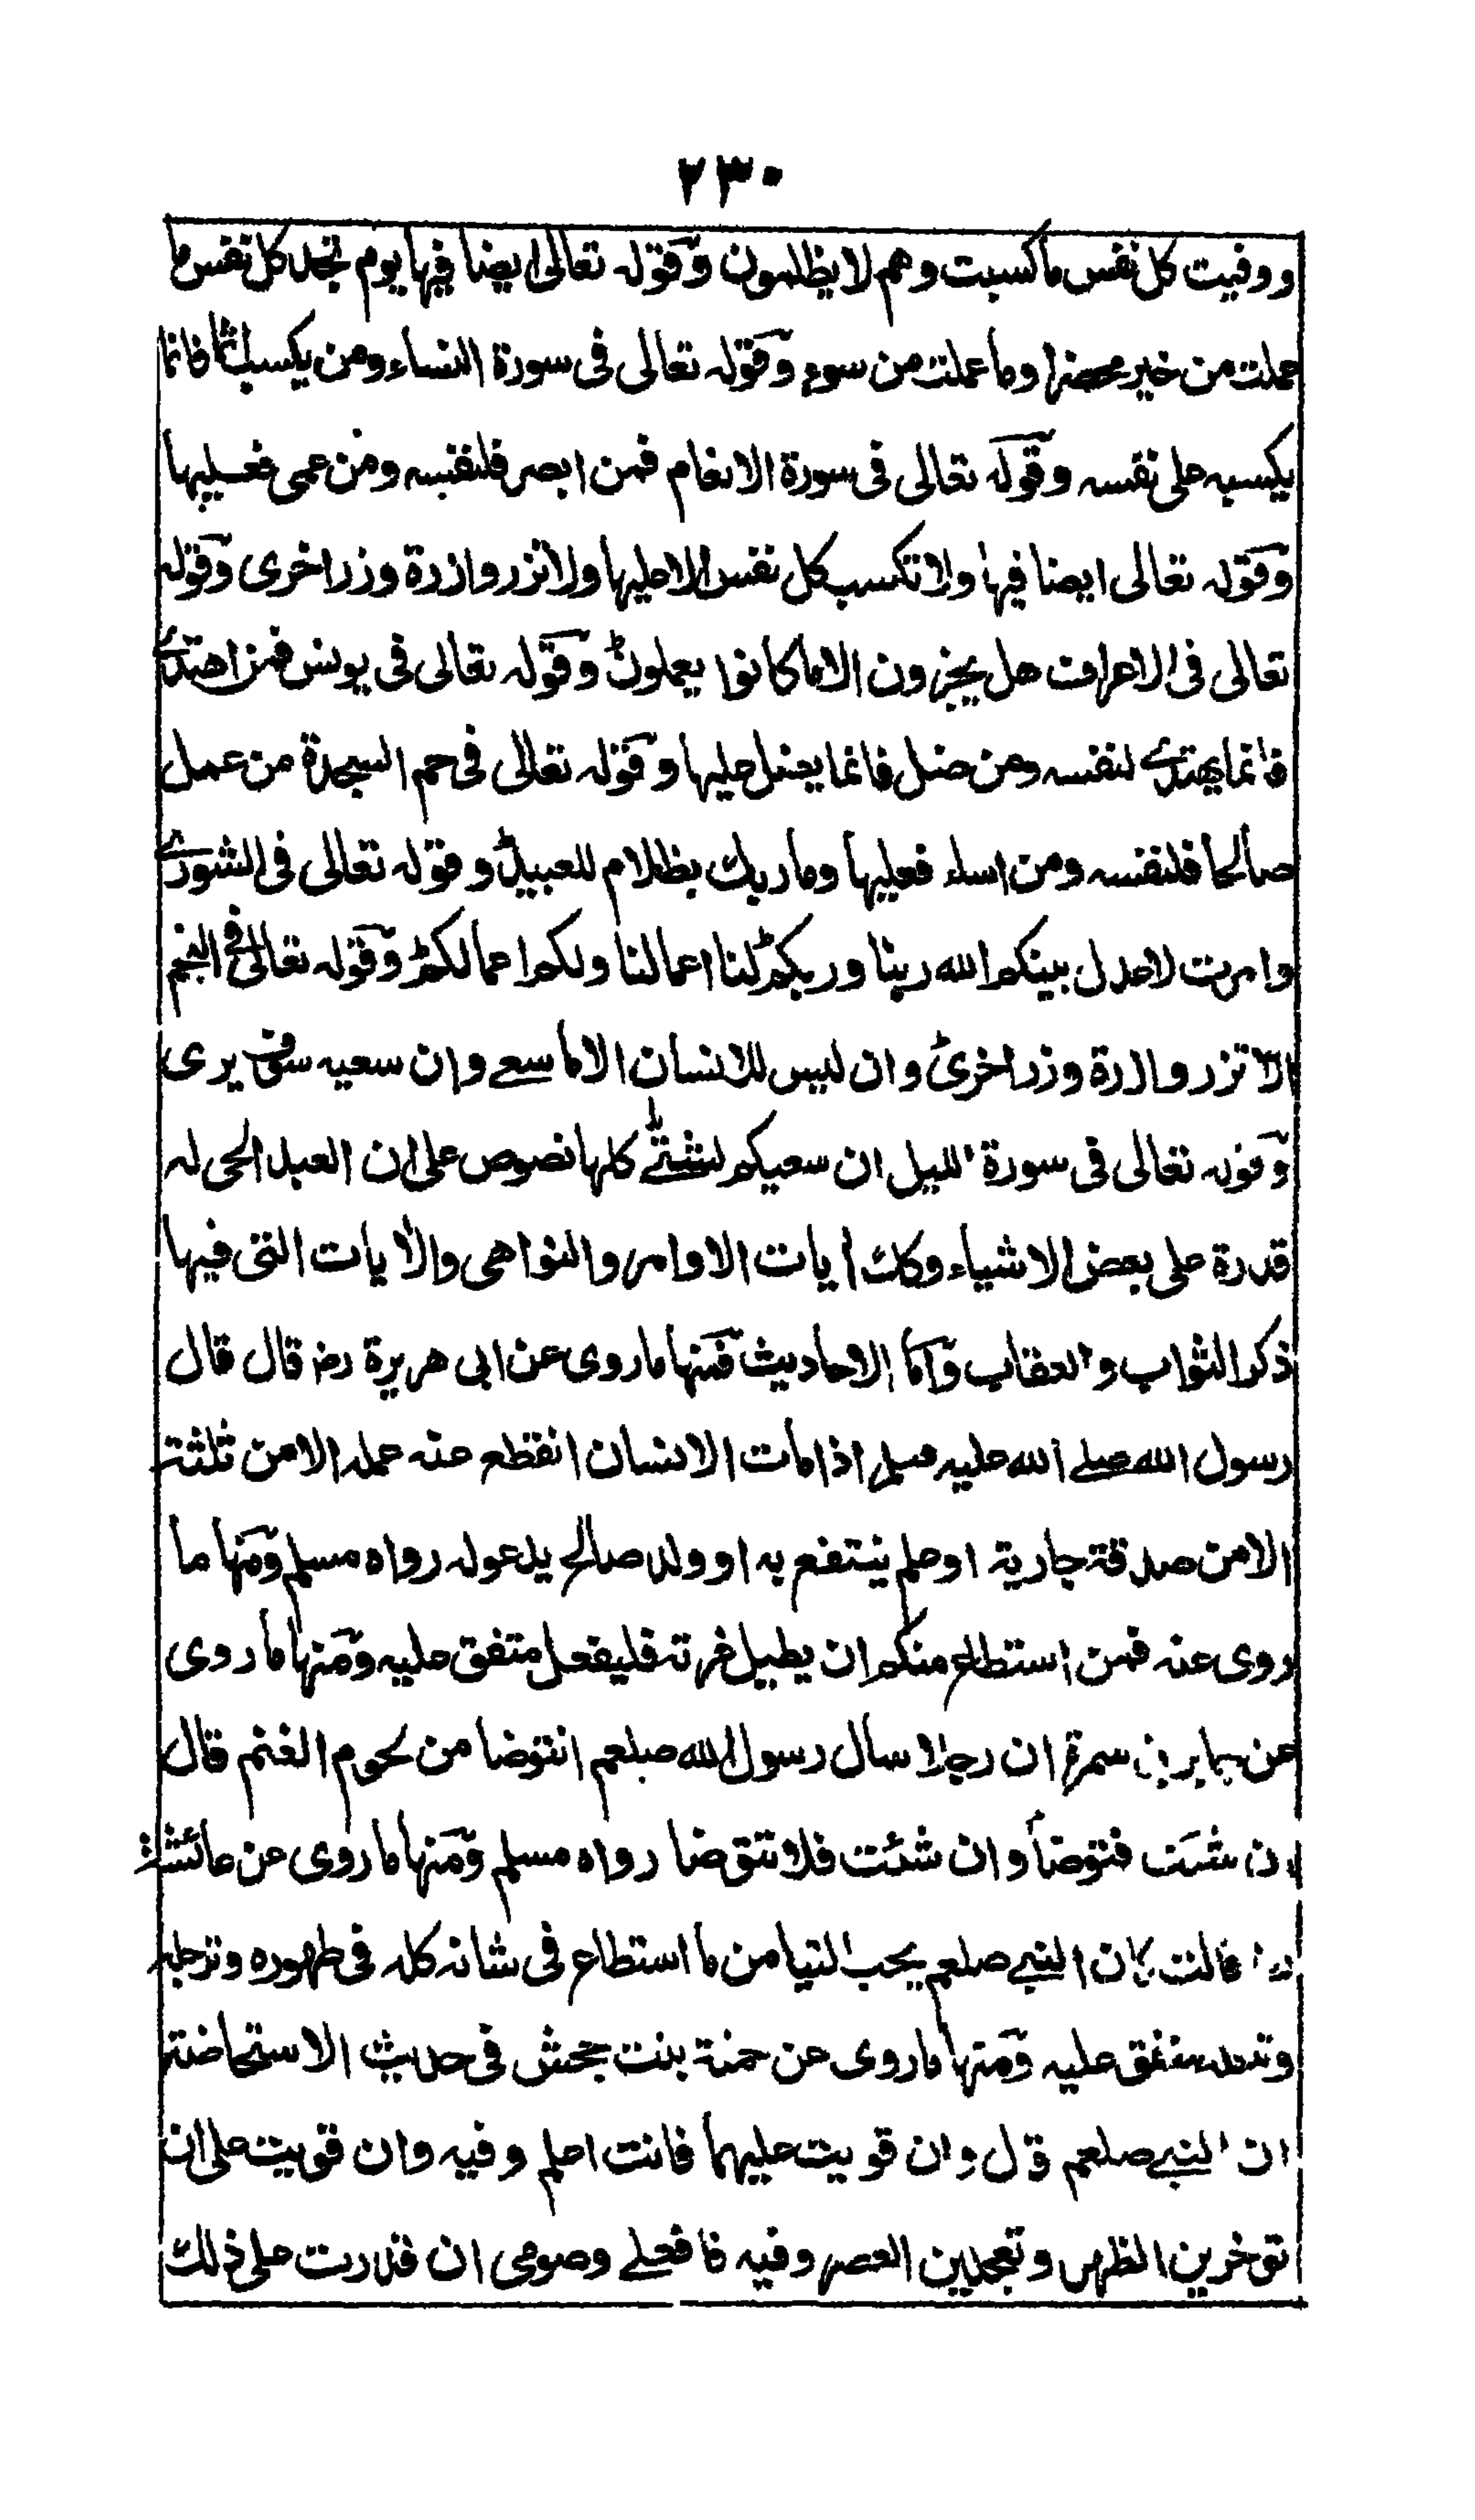 ٢٣٠
ووفيت كل نفس ما كسبت وهم لا يظلمون وقوله تعالى ايضا فيها يوم تجد كل نفس ما
عملت من خير محضرا وما عملت من سوء وقوله تعالى فى سورة النساء ومن يكسب اثما فانما
يكسبه على نفسه وقوله تعالى فى سورة الانعام فمن ابصر فلنفسه ومن عمى فعليها
وقوله تعالى ايضا فيها ولا تكسب كل نفس الا عليها ولا تزر وازرة وزر اخرى وقوله
تعالى فى الاعراف هل يجزون الا ما كانوا يعملون وقوله تعالى فى يونس فمن اهتدے
فانما يهتدے لنفسه ومن ضل فانما يضل عليها وقوله تعالى فى حم السجدة من عمل
صالحا فلنفسه ومن اساء فعليها وما ربك بظلام للعبيد وقوله تعالى فى الشورے
وامرت لاعدل بينكم الله ربنا وربكم لنا اعمالنا ولكم اعمالكم وقوله تعالى فى النجم
الا تزر وازرة وزر اخرى وان ليس للانسان الا ما سعے وان سعيه سوف يرى
وقوله تعالى فى سورة الليل ان سعيكم لشتے كلها نصوص على ان العبد الحى له
قدرة على بعض الاشياء وكذلك ايات الاوامر والنواهى والايات التى فيها
ذكر الثواب والعقاب واما الاحاديث فمنها ما روى عن ابى هريرة رض قال قال
رسول الله صلے الله عليه وسلم اذا مات الانسان انقطع عنه عمله الا من ثلثة
الا من صدقة جارية او علم ينتفع به او ولد صالح يدعو له رواه مسلم ومنها ما
روى عنه فمن استطاع منكم ان يطيل غرته فليفعل متفق عليه ومنها ما روى
عن جابر بن سمرة ان رجلا سال رسول الله صلعم انتوضا من لحوم الغنم قال
ان شئت فتوضأ وان شئت فلا تتوضا رواه مسلم ومنها ما روى عن عائشة
رض قالت كان النبے صلعم يحب التيامن ما استطاع فى شانه كله فى طهوره وترجله
وتنعله متفق عليه ومنها ما روى عن حمنة بنت جحش فى حديث الاستحاضة
ان النبے صلعم قال وان قويت عليهما فانت اعلم وفيه وان قويت على ان
توخرين الظهر وتعجلين العصر وفيه فافعلے وصومى ان قدرت على ذلك